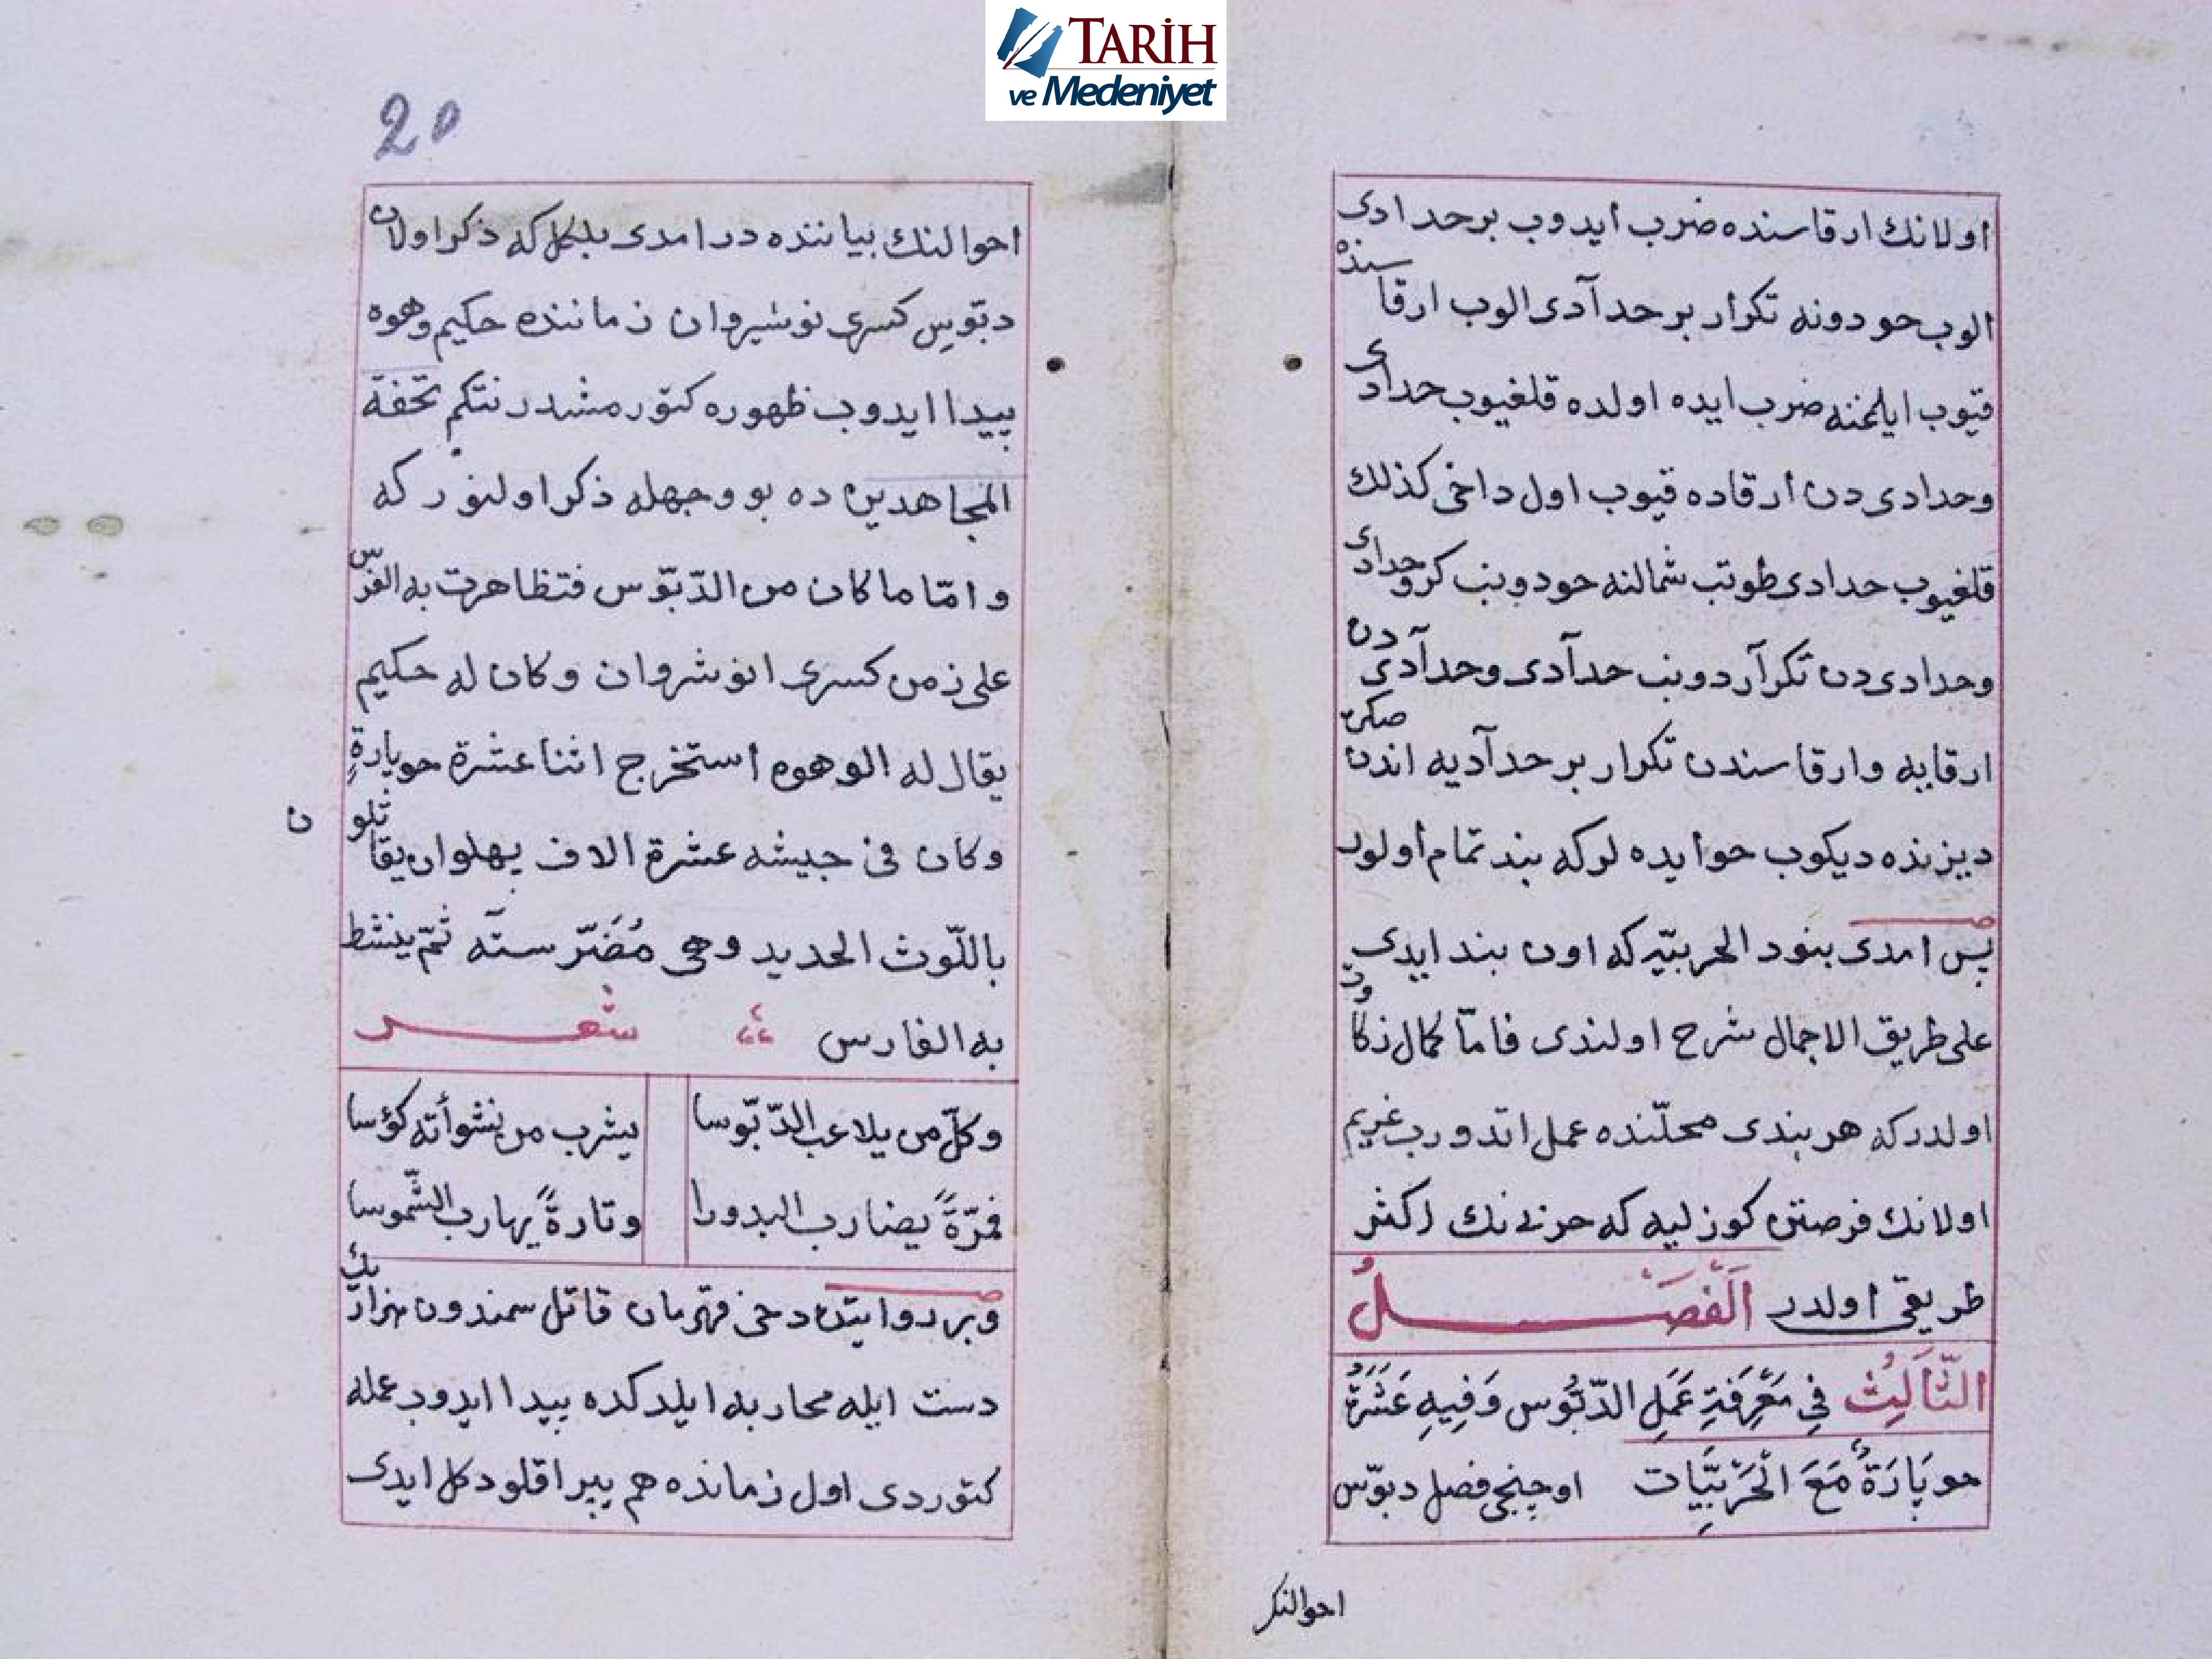 TARİH
ve Medeniyet
اولانك ارقاسنده ضرب ايدوب برحدادى
الوب حودونه تكرار برحدآدى الوب ارقاسنده
قيوب ايلمنه ضرب ايده اولده قلغيوب حدادى
وحدادى دن ارقاده قيوب اول داخى كذلك
قلغيوب حدادى طوتب شمالنه حودونب كروحدادى
وحدادى دن تكرآر دونب حدآدى وحدآدى دن
ارقايه وارقاسندن تكرار برحدآديه اندن صكره
ديزنده ديكوب حوايده لركه بند تمام اولور
پس امدى بنود الحربيّه كه اون بند ايدى
على طريق الاجمال شرح اولندى فامّا كمال ذكاوت
اولدركه هر بندى محلّنده عمل اتدورب غريم
اولانك فرصتن كوزليه كه حربه نك اكثر
طريقى اولدر اَلْفَصْلُ
الثَّالِثُ فِى مَعْرِفَةِ عَمَلِ الدّبُّوس وَفِيهِ عَشَرَةُ
حوپَارَةً مَعَ الْحَرْبِيَّات اوچنجى فصل دبوّس
احوالنك
20
احوالنك بياننده در امدى بلكل كه ذكر اولان
دبّوس كسرى نوشيروان زماننده حكيم وهوه
پيدا ايدوب ظهوره كتورمشدر نتكم تحفة
المجاهدين ده بو وجهله ذكر اولنور كه
وامّا ما كان من الدّبّوس فتظاهرت به الفرس
على زمن كسرى انوشروان وكان له حكيم
يقال له الوهوه استخرج اثنا عشرة حوپارةٍ
وكان فى جيشه عشرة الاف پهلوان يقاتلون
باللّوث الحديد وهى مُضَرّسته ثمّ ينشط
به الفارس شعر
وكلّ من يلاعب الدّبّوسا يشرب من نشوأته كؤسا
فمرّةً يضارب البدورا وتارةً يهارب الشّموسا
وبر روايتده دخى قهرمان قاتل سمندون هزار يك
دست ايله محاربه ايلدكده پيدا ايدوب عمله
كتوردى اول زمانده هم پپراقلو دكل ايدى